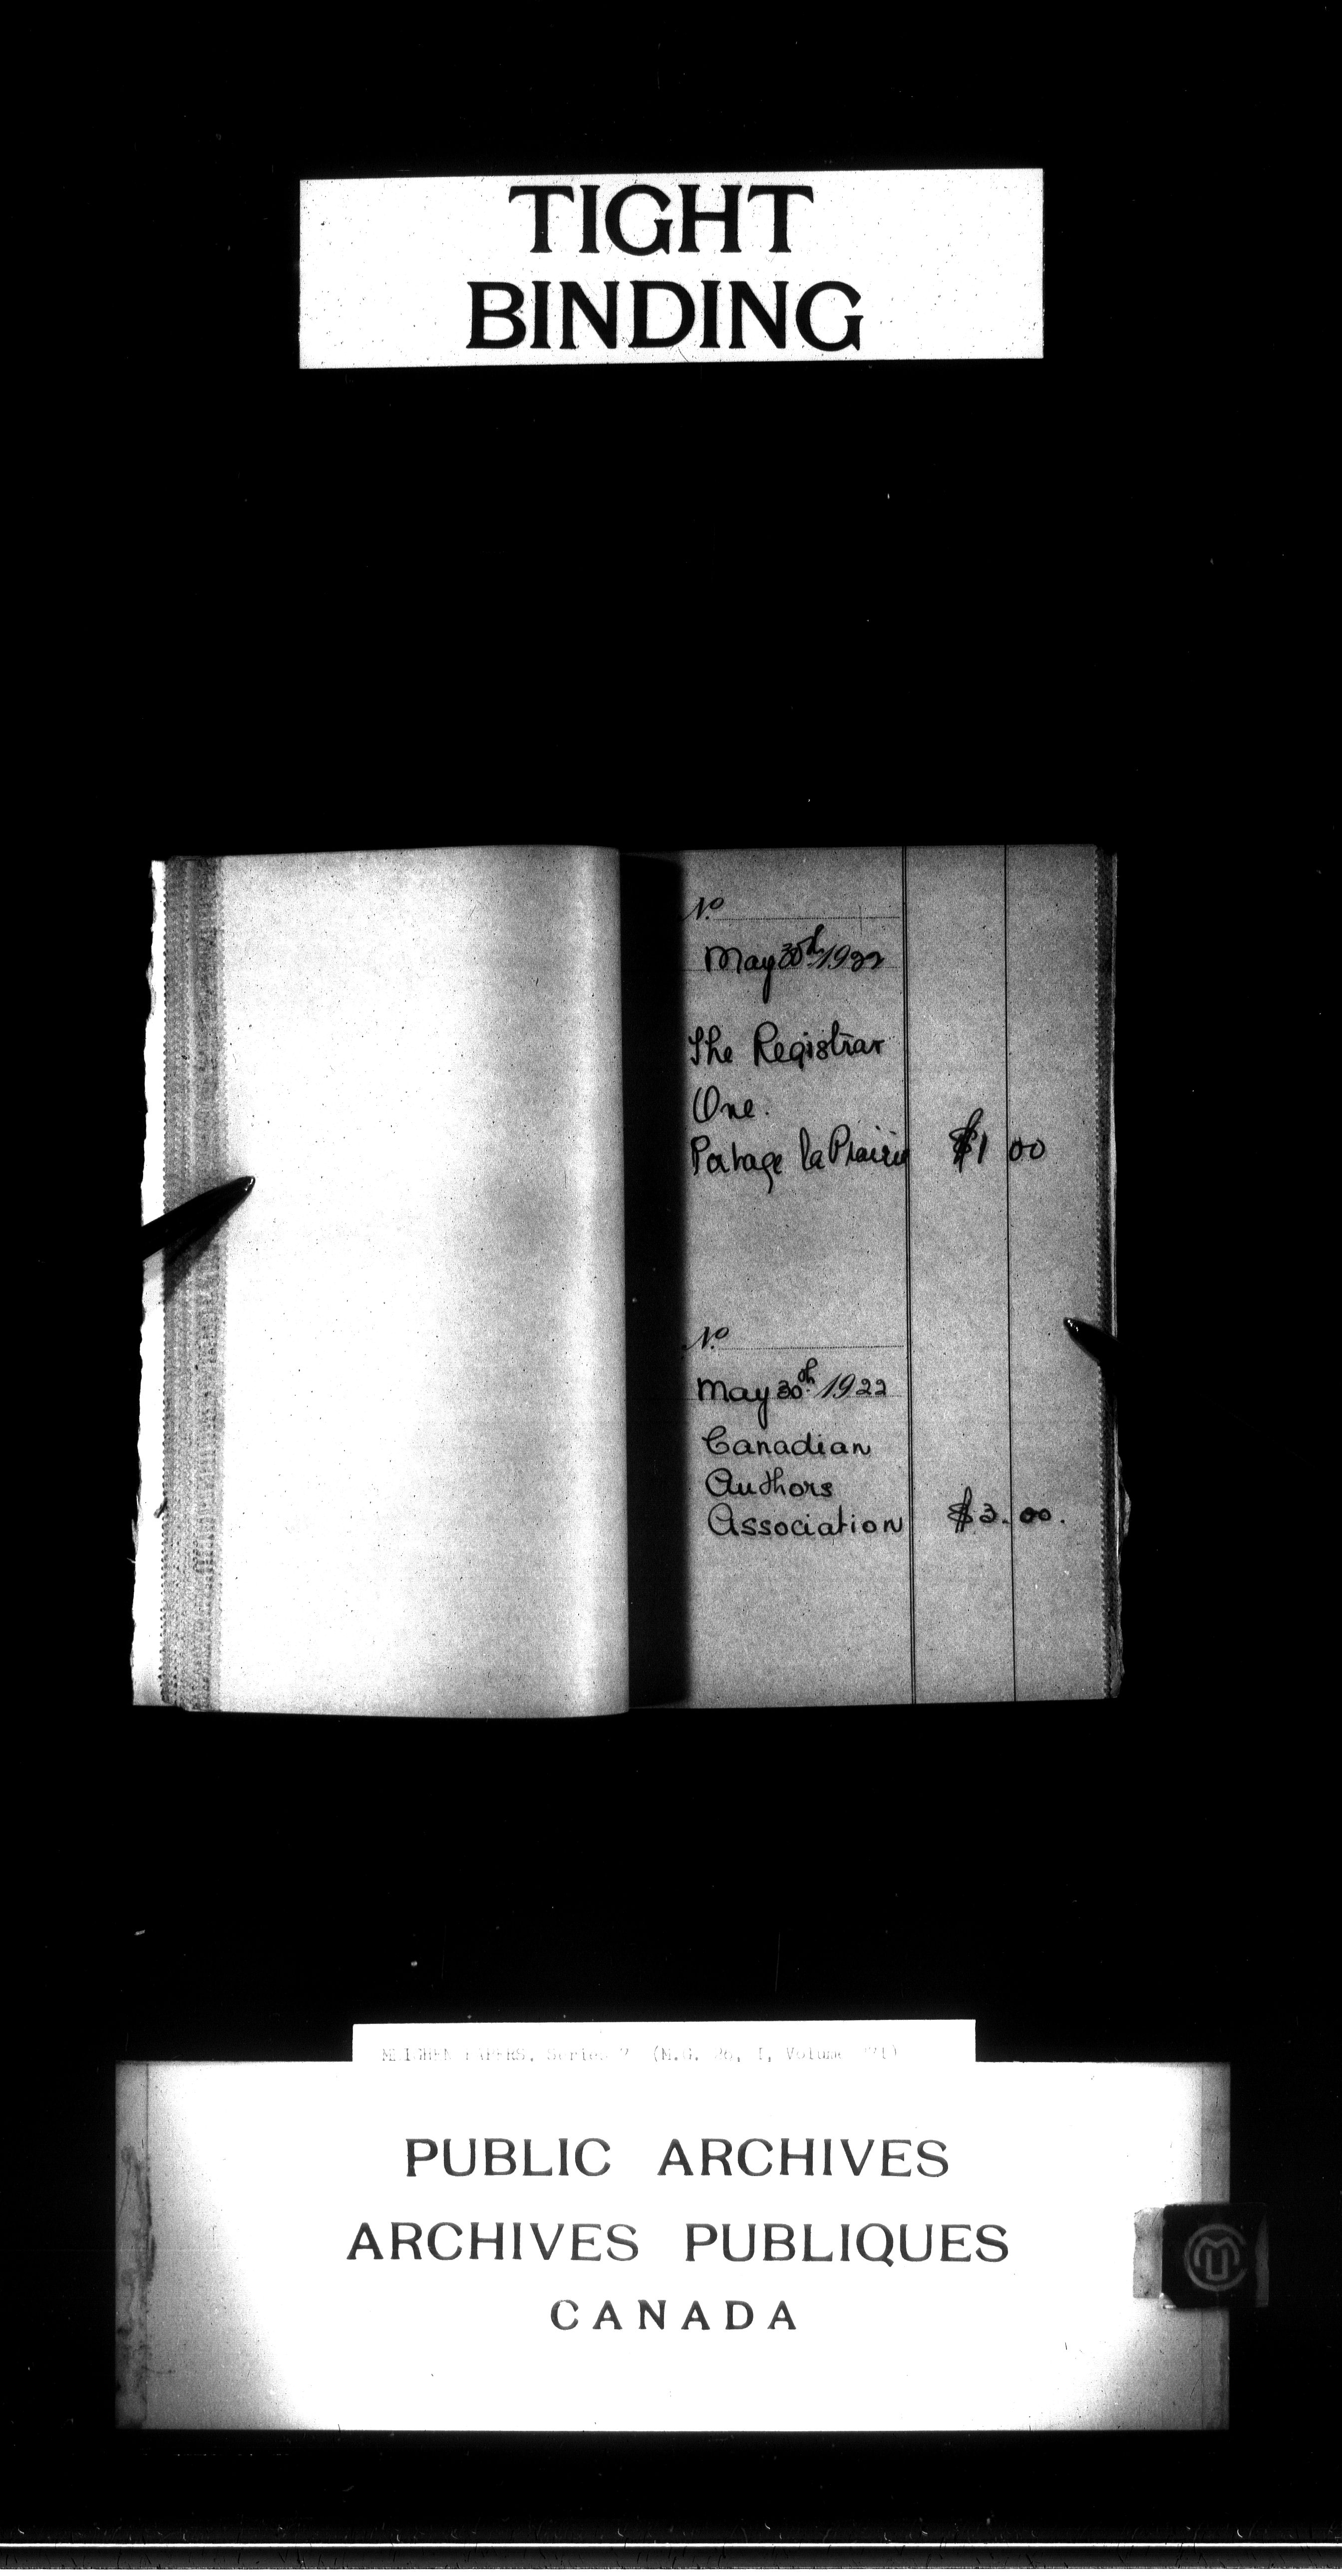 TIGHT
BINDING
No
May 30th 1922
The Registrar
One.
Portage la Prairie $1 00
No
May 30th 1922
Canadian
Authors
Association $3.00.
MEIGHEN PAPERS, Series (M.G. 26, I, Volume
PUBLIC ARCHIVES
ARCHIVES PUBLIQUES
CANADA